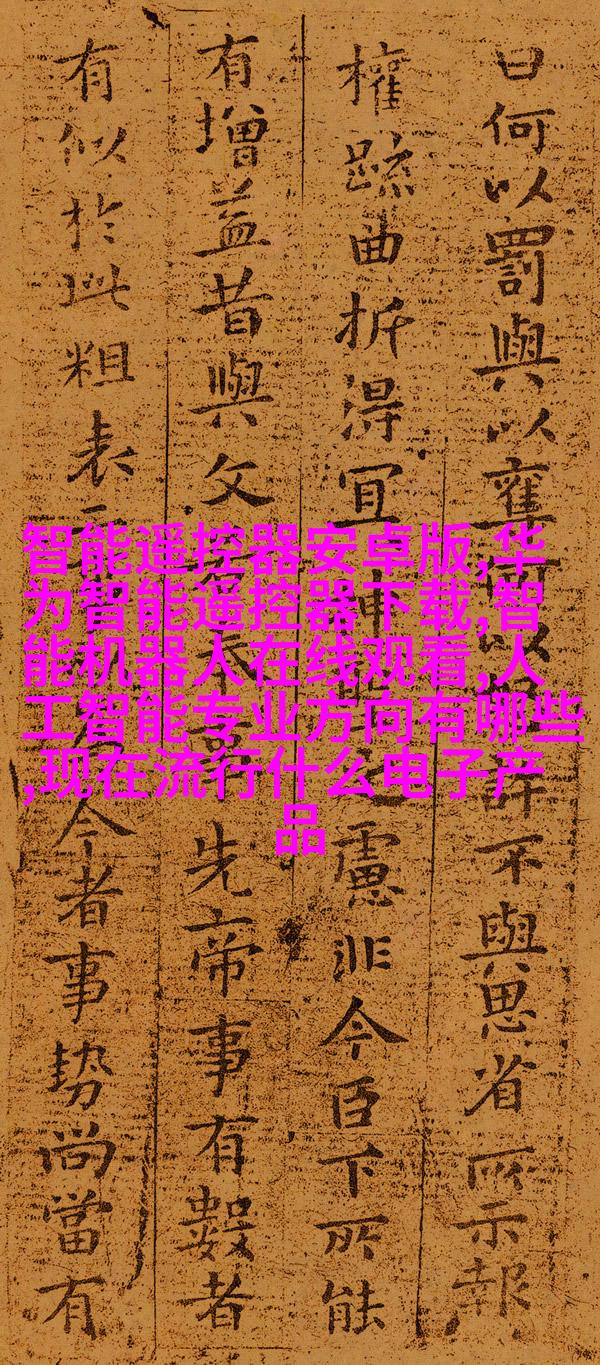 曰何以罰與以奪何以許不與思省所示報
權疏曲折得宜神之慮非今臣下所能
有增益昔與文若奉事先帝事有數者
有似於此粗表二今者事勢尚當有
智能遥控器安卓版,华
为智能遥控器下载,智
能机器人在线观看,人
工智能专业方向有哪些
,现在流行什么电子产
品